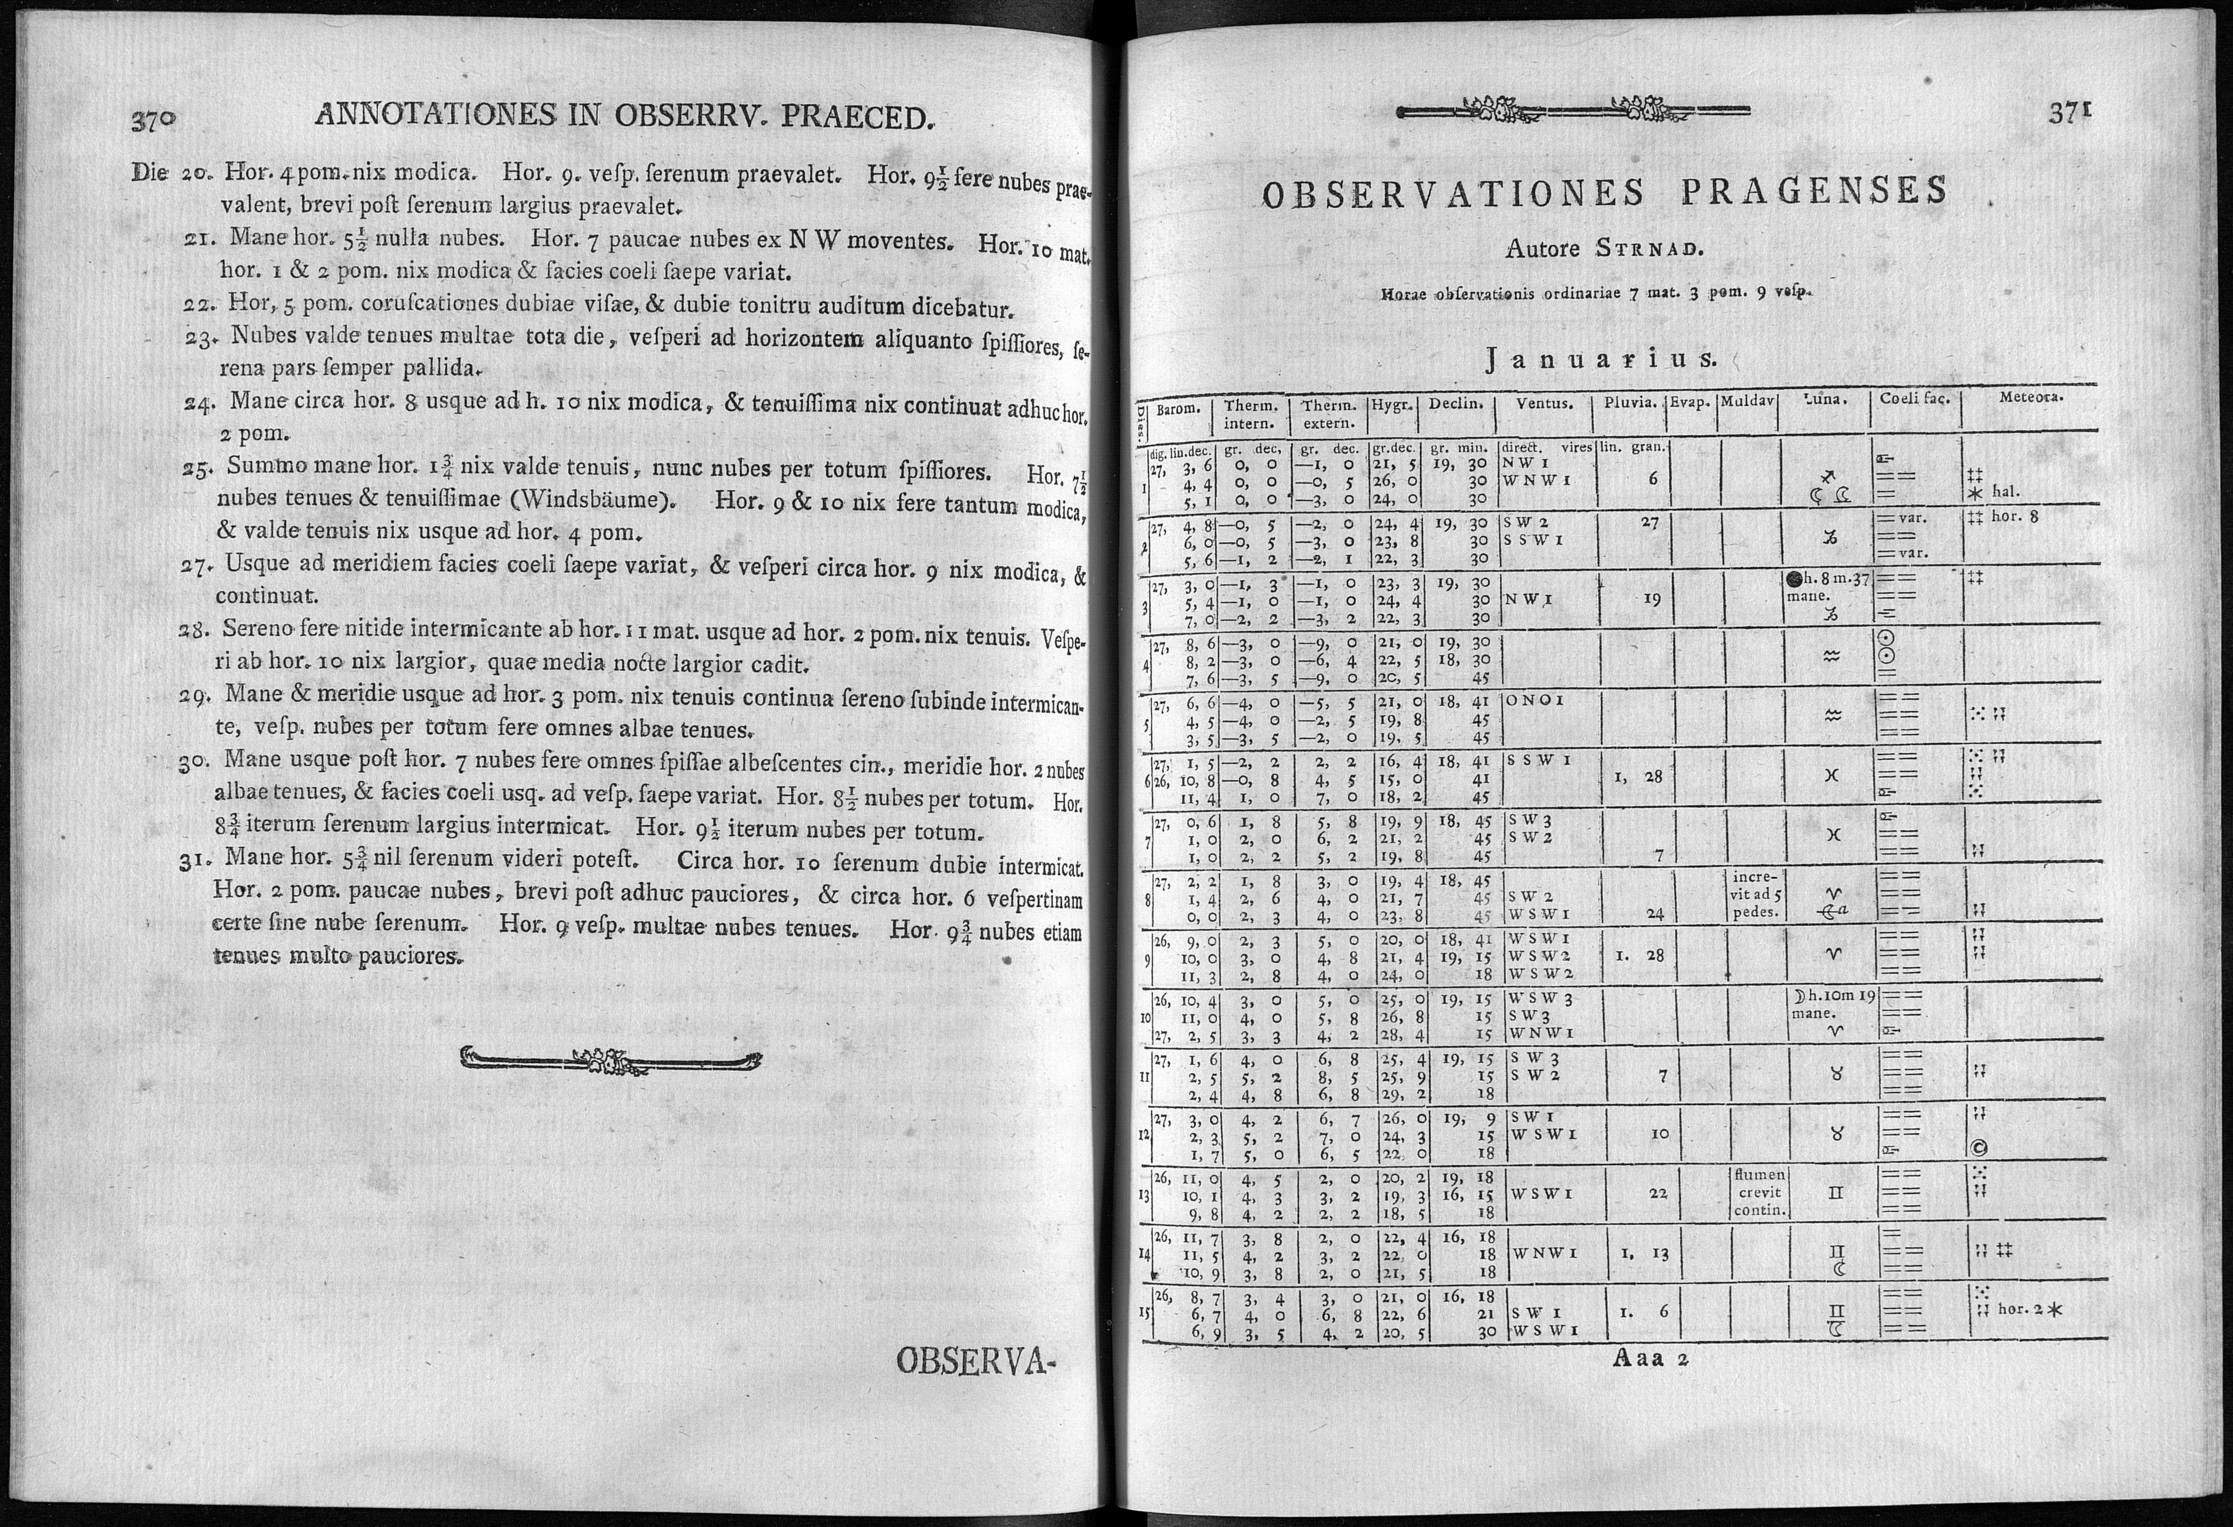 370
ANNOTATIONES IN OBSERRV. PRAECED.
Die 20. Hor. 4 pom. nix modica. Hor. 9. veſp. ſerenum praevalet. Hor. 9½ fere nubes prae-
valent, brevi poſt ſerenum largius praevalet.
21. Mane hor. 5½ nulla nubes. Hor. 7 paucae nubes ex N W moventes. Hor. 10 mat.
hor. 1 & 2 pom. nix modica & facies coeli ſaepe variat.
22. Hor, 5 pom. coruſcationes dubiae viſae, & dubie tonitru auditum dicebatur.
23. Nubes valde tenues multae tota die, veſperi ad horizontem aliquanto ſpiſſiores, ſe-
rena pars ſemper pallida.
24. Mane circa hor. 8 usque ad h. 10 nix modica, & tenuiſſima nix continuat adhuc hor.
2 pom.
25. Summo mane hor. 1¾ nix valde tenuis, nunc nubes per totum ſpiſſiores. Hor. 7½
nubes tenues & tenuiſſimae (Windsbäume). Hor. 9 & 10 nix fere tantum modica,
& valde tenuis nix usque ad hor. 4 pom.
27. Usque ad meridiem facies coeli ſaepe variat, & veſperi circa hor. 9 nix modica, &
continuat.
28. Sereno fere nitide intermicante ab hor. 11 mat. usque ad hor. 2 pom. nix tenuis. Veſpe-
ri ab hor. 10 nix largior, quae media nocte largior cadit.
29. Mane & meridie usque ad hor. 3 pom. nix tenuis continua ſereno ſubinde intermican-
te, veſp. nubes per totum fere omnes albae tenues.
30. Mane usque poſt hor. 7 nubes fere omnes ſpiſſae albeſcentes cin., meridie hor. 2 nubes
albae tenues, & facies coeli usq. ad veſp. ſaepe variat. Hor. 8½ nubes per totum. Hor.
8¾ iterum ſerenum largius intermicat. Hor. 9½ iterum nubes per totum.
31. Mane hor. 5¾ nil ſerenum videri poteſt. Circa hor. 10 ſerenum dubie intermicat.
Hor. 2 pom. paucae nubes, brevi poſt adhuc pauciores, & circa hor. 6 veſpertinam
certe ſine nube ſerenum. Hor. 9 veſp. multae nubes tenues. Hor. 9¾ nubes etiam
tenues multo pauciores.
OBSERVA-
371
OBSERVATIONES PRAGENSES
Autore STRNAD.
Horae obſervationis ordinariae 7 mat. 3 pom. 9 veſp.
Januarius.
Dies. Barom. Therm. intern. Therm. extern. Hygr. Declin. Ventus. Pluvia. Evap. Muldav Luna. Coeli fac. Meteora.
dig. lin. dec. gr. dec. gr. dec. gr. dec. gr. min. direct. vires lin. gran.
27, 3, 6 0, 0 —1, 0 21, 5 19, 30 N W 1
1 4, 4 0, 0 —0, 5 26, 0 30 W N W 1 6 ♐ == ‡‡
5, 1 0, 0 —3, 0 24, 0 30 ☾ ☾ = * hal.
27, 4, 8 —0, 5 —2, 0 24, 4 19, 30 S W 2 27 = var. ‡‡ hor. 8
2 6, 0 —0, 5 —3, 0 23, 8 30 S S W 1 ♑ ==
5, 6 —1, 2 —2, 1 22, 3 30 = var.
27, 3, 0 —1, 3 —1, 0 23, 3 19, 30 ● h. 8 m. 37 == ‡‡
3 5, 4 —1, 0 —1, 0 24, 4 30 N W 1 19 mane. ==
7, 0 —2, 2 —3, 2 22, 3 30 ♑
27, 8, 6 —3, 0 —9, 0 21, 0 19, 30 ☉
4 8, 2 —3, 0 —6, 4 22, 5 18, 30 ♒ ☉
7, 6 —3, 5 —9, 0 20, 5 45 =
27, 6, 6 —4, 0 —5, 5 21, 0 18, 41 O N O 1 ==
5 4, 5 —4, 0 —2, 5 19, 8 45 ♒ ==
3, 5 —3, 5 —2, 0 19, 5 45 ==
27, 1, 5 —2, 2 2, 2 16, 4 18, 41 S S W 1 ==
6 26, 10, 8 —0, 8 4, 5 15, 0 41 1, 28 ♓ ==
11, 4 1, 0 7, 0 18, 2 45
27, 0, 6 1, 8 5, 8 19, 9 18, 45 S W 3
7 1, 0 2, 0 6, 2 21, 2 45 S W 2 ♓ ==
1, 0 2, 2 5, 2 19, 8 45 7 ==
27, 2, 2 1, 8 3, 0 19, 4 18, 45 incre- ==
8 1, 4 2, 6 4, 0 21, 7 45 S W 2 vit ad 5 ♈ ==
0, 0 2, 3 4, 0 23, 8 45 W S W 1 24 pedes. ==
26, 9, 0 2, 3 5, 0 20, 0 18, 41 W S W 1 ==
9 10, 0 3, 0 4, 8 21, 4 19, 15 W S W 2 1. 28 ♈ ==
11, 3 2, 8 4, 0 24, 0 18 W S W 2 ==
26, 10, 4 3, 0 5, 0 25, 0 19, 15 W S W 3 ☽ h. 10 m 19 ==
10 11, 0 4, 0 5, 8 26, 8 15 S W 3 mane. ==
27, 2, 5 3, 3 4, 2 28, 4 15 W N W 1 ♈
27, 1, 6 4, 0 6, 8 25, 4 19, 15 S W 3 ==
11 2, 5 5, 2 8, 5 25, 9 15 S W 2 7 ♉ ==
2, 4 4, 8 6, 8 29, 2 18 ==
27, 3, 0 4, 2 6, 7 26, 0 19, 9 S W 1 ==
12 2, 3 5, 2 7, 0 24, 3 15 W S W 1 10 ♉ ==
1, 7 5, 0 6, 5 22, 0 18 ©
26, 11, 0 4, 5 2, 0 20, 2 19, 18 flumen ==
13 10, 1 4, 3 3, 2 19, 3 16, 15 W S W 1 22 crevit ♊ ==
9, 8 4, 2 2, 2 18, 5 18 contin. ==
26, 11, 7 3, 8 2, 0 22, 4 16, 18 =
14 11, 5 4, 2 3, 2 22, 0 18 W N W 1 1, 13 ♊ == ‡‡
10, 9 3, 8 2, 0 21, 5 18 ☾ ==
26, 8, 7 3, 4 3, 0 21, 0 16, 18 ==
15 6, 7 4, 0 6, 8 22, 6 21 S W 1 1. 6 ♊ == hor. 2 *
6, 9 3, 5 4, 2 20, 5 30 W S W 1 ☾ ==
Aaa 2